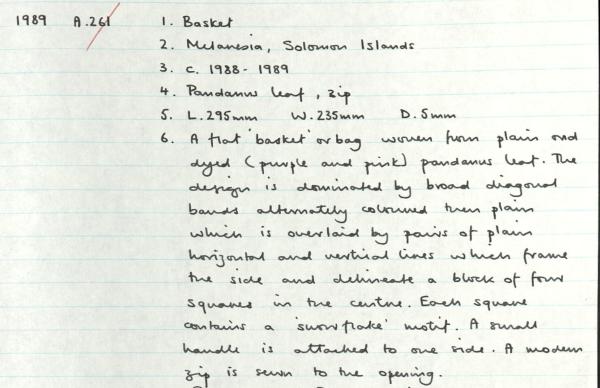 1989 A.261 1. Basket
2. Melanesia, Solomon Islands
3. c. 1988-1989
4. Pandanus leaf, zip
5. L.295mm W.235mm D.5mm
6. A flat 'basket' or bag woven from plain and
dyed (purple and pink) pandanus leaf. The
design is dominated by broad diagonal
bands alternately coloured then plain
which is overlaid by pairs of plain
horizontal and vertical lines which frame
the side and delineate a block of four
squares in the centre. Each square
contains a 'snowflake' motif. A small
handle is attached to one side. A modern
zip is sewn to the opening.